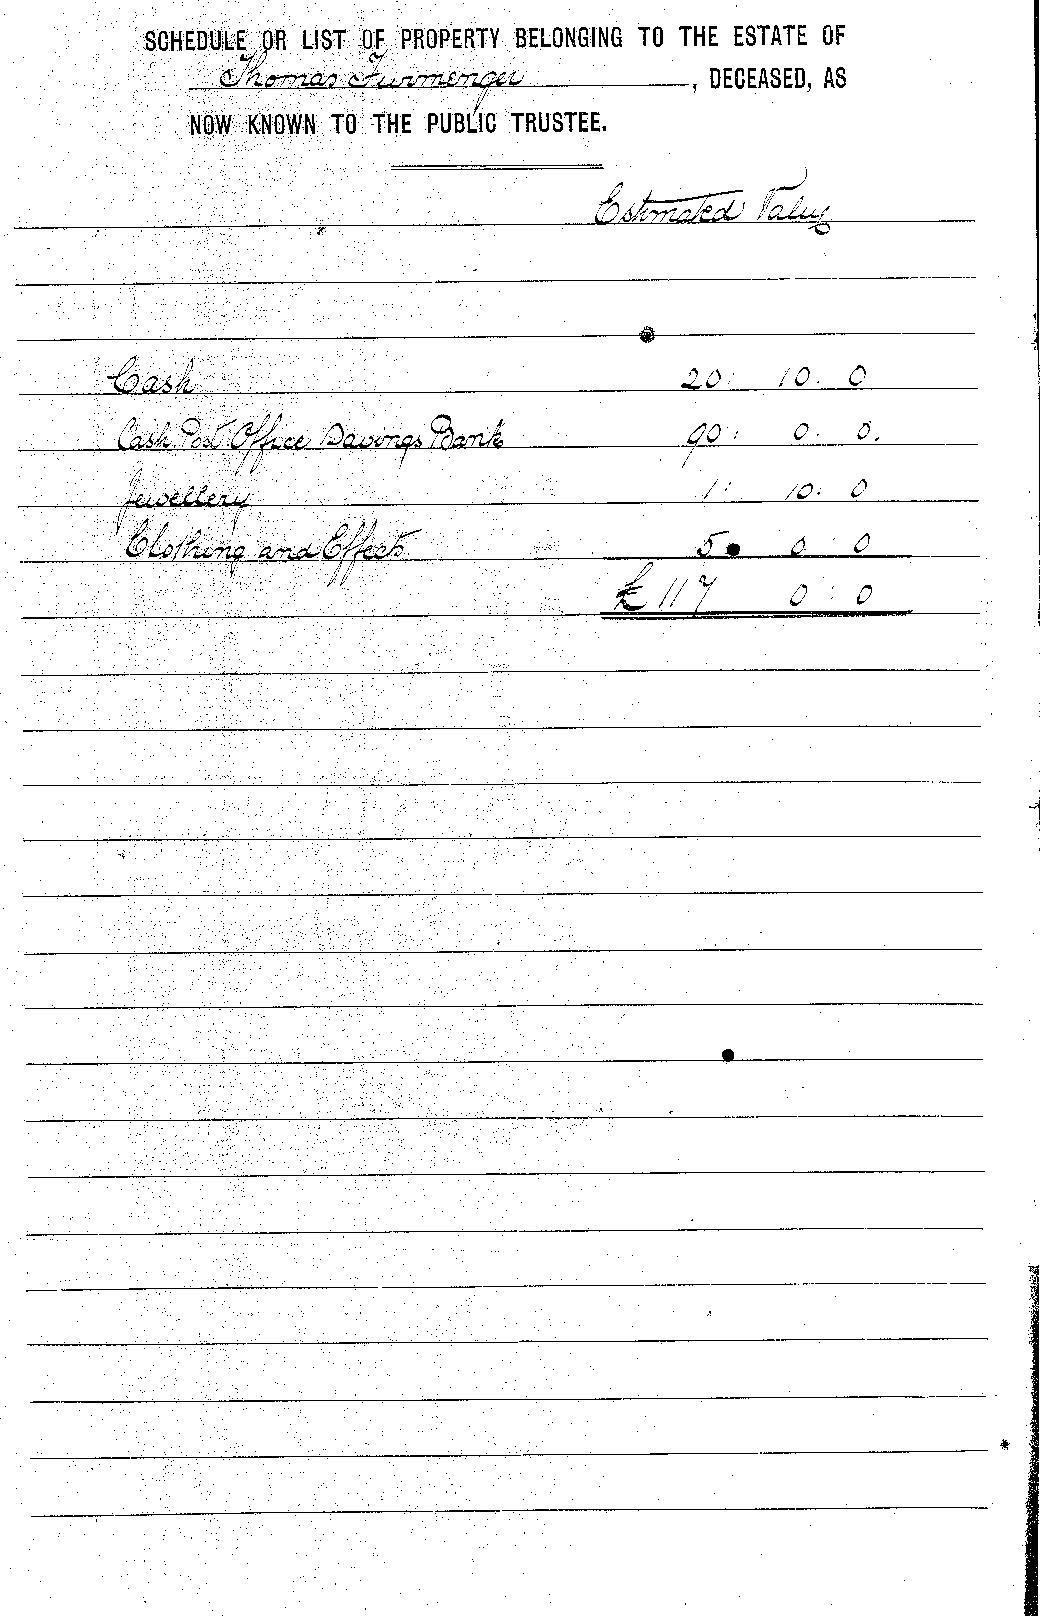 SCHEDULE OR LIST OF PROPERTY BELONGING TO THE ESTATE OF
Thomas Furmenger, DECEASED, AS
NOW KNOWN TO THE PUBLIC TRUSTEE.
Estimated Value
Cash 20: 10. 0
Cash Post Office Savings Bank 90: 0. 0.
Jewellery 1: 10: 0
Clothing and Effects 5 0 0
£ 117 0: 0